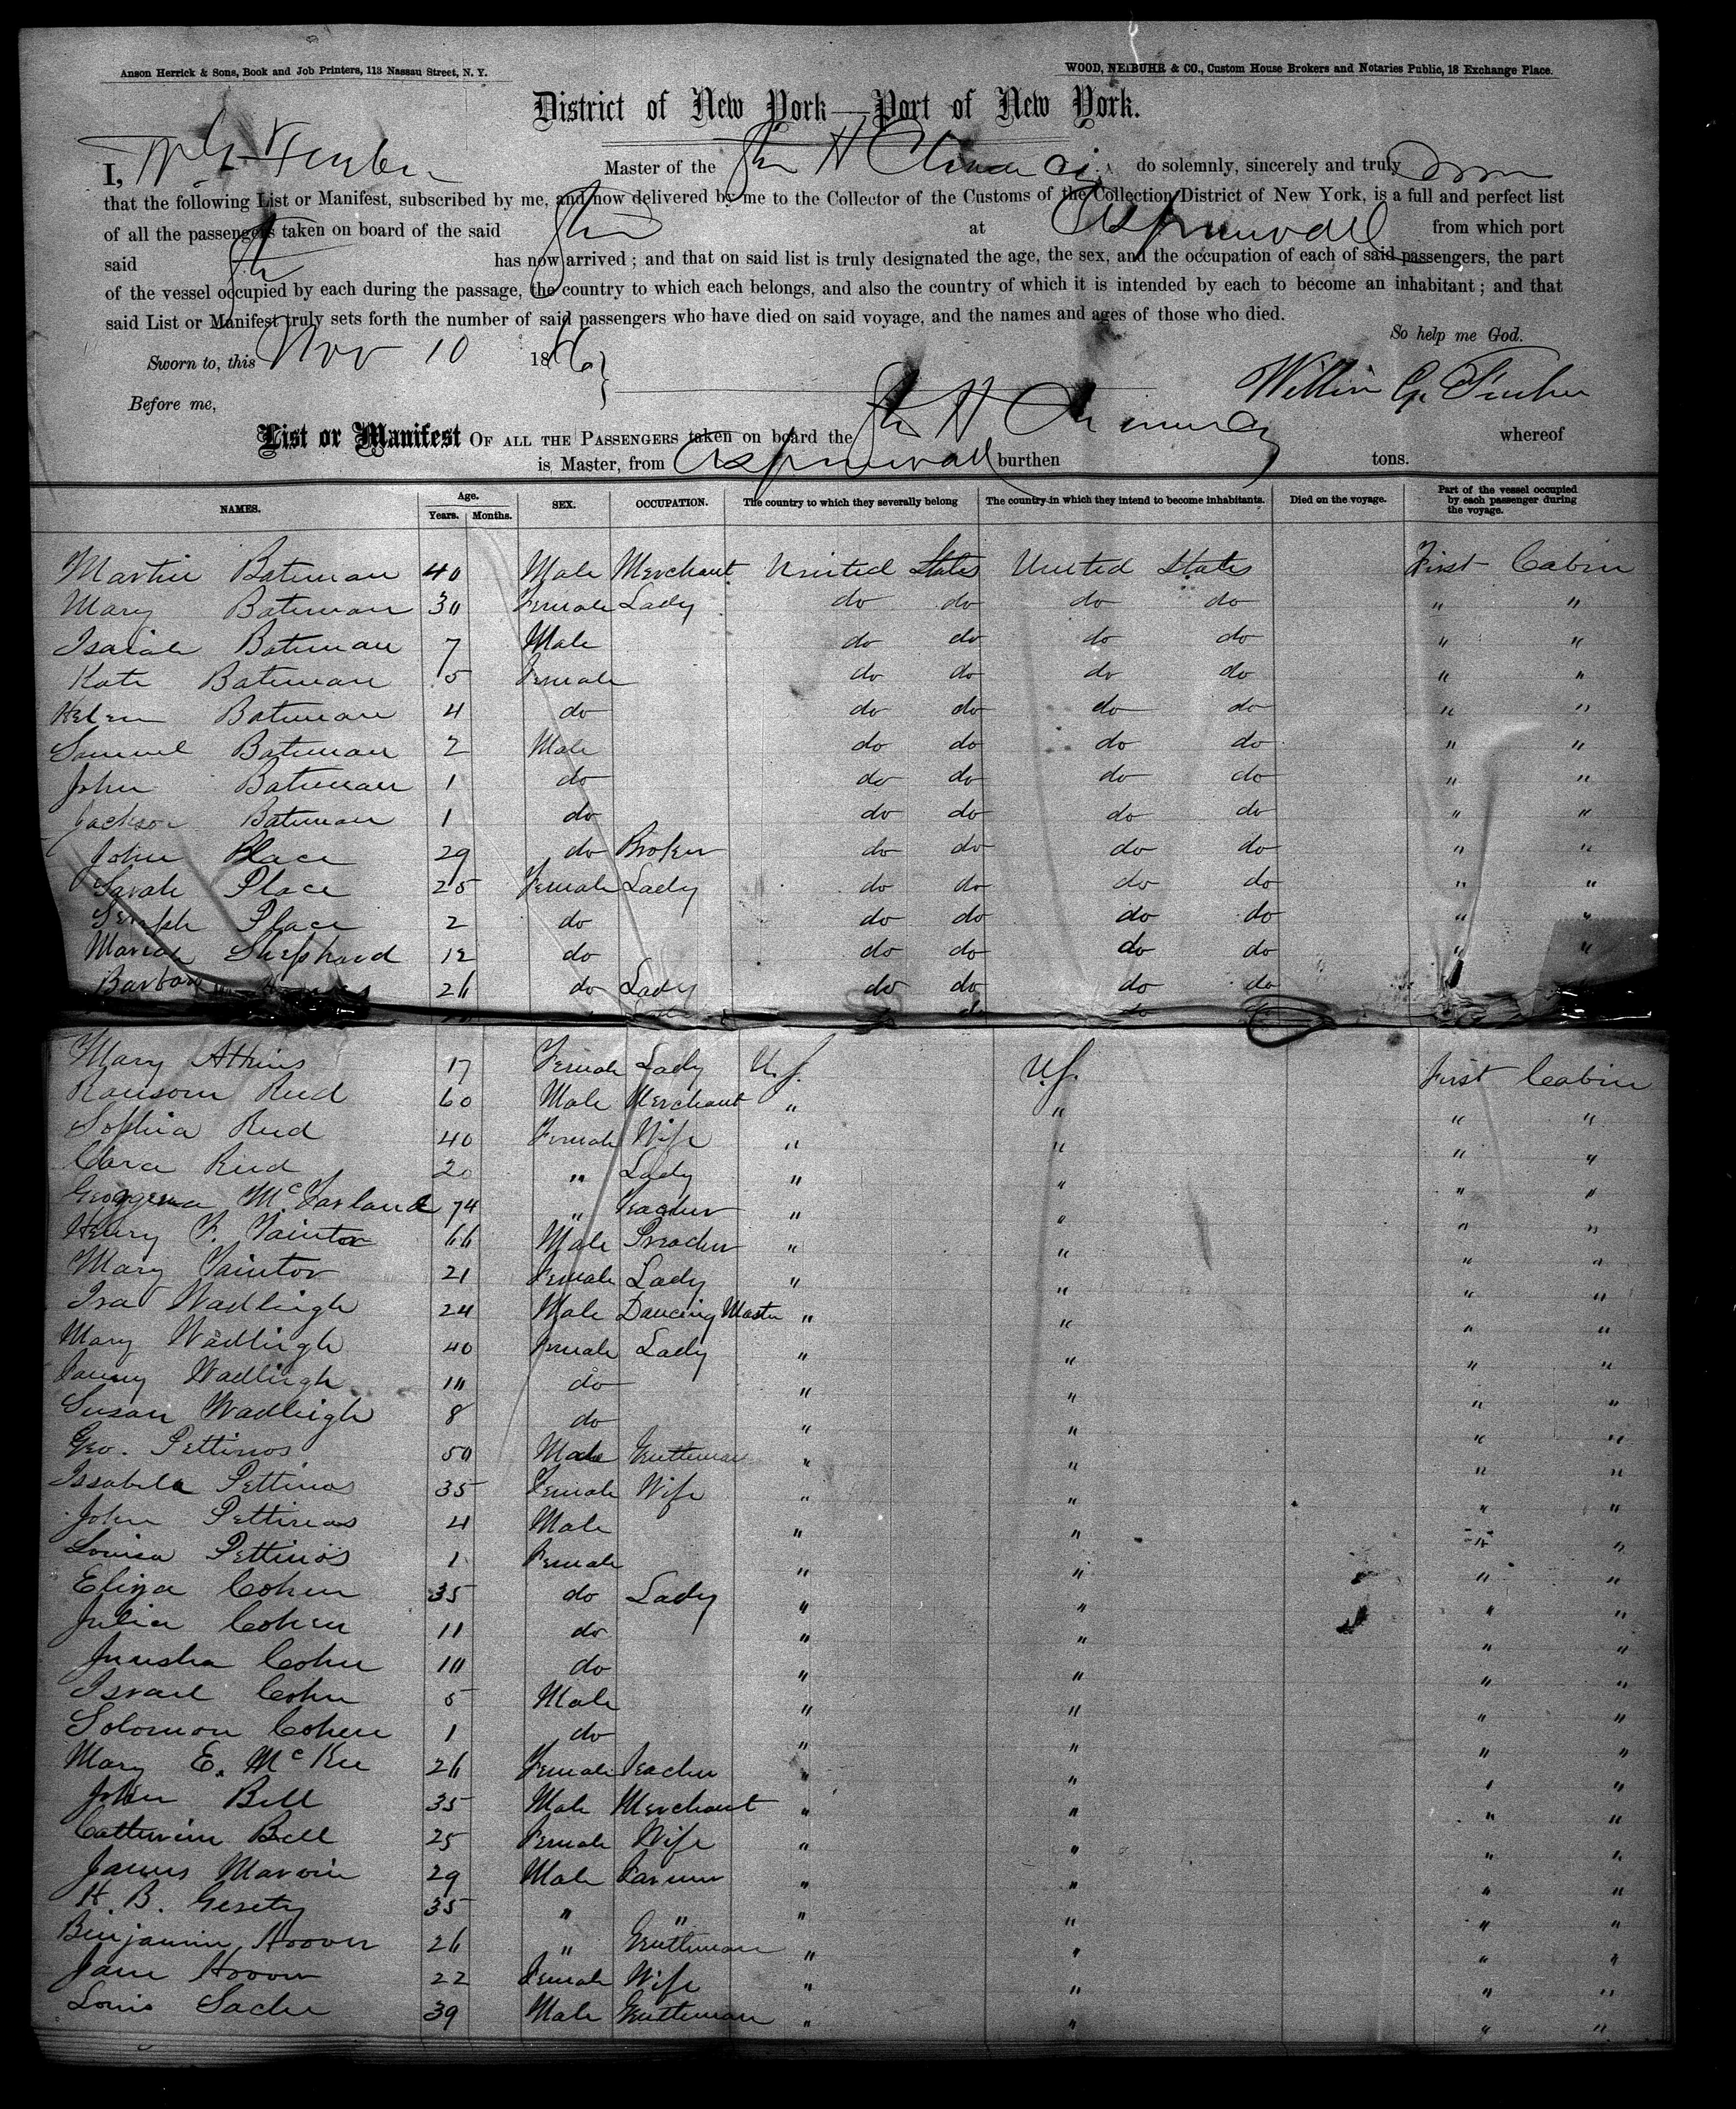 Anson Herrick & Sons, Book and Job Printers, 113 Nassau Street, N. Y.
WOOD, NEIBUHR & CO., Custom House Brokers and Notaries Public, 18 Exchange Place.
District of New York—Port of New York.
I, Master of the do solemnly, sincerely and truly
that the following List or Manifest, subscribed by me, and now delivered by me to the Collector of the Customs of the Collection District of New York, is a full and perfect list
of all the passengers taken on board of the said at Aspinwall from which port
said has now arrived ; and that on said list is truly designated the age, the sex, and the occupation of each of said passengers, the part
of the vessel occupied by each during the passage, the country to which each belongs, and also the country of which it is intended by each to become an inhabitant ; and that
said List or Manifest truly sets forth the number of said passengers who have died on said voyage, and the names and ages of those who died.
So help me God.
Sworn to, this Nov 10 1866
Before me,
List or Manifest OF ALL THE PASSENGERS taken on board the whereof
is Master, from Aspinwall burthen tons.
NAMES. Age. Years. Months. SEX. OCCUPATION. The country to which they severally belong The country in which they intend to become inhabitants. Died on the voyage. Part of the vessel occupied by each passenger during the voyage.
Martin Bateman 40 Male Merchant United States United States First Cabin
Mary Bateman 30 Female Lady do do do do " "
Isaiah Bateman 7 Male do do do do " "
Kate Bateman 5 Female do do do do " "
Helen Bateman 4 do do do do do " "
Samuel Bateman 2 Male do do do do " "
John Bateman 1 do do do do do " "
Jackson Bateman 1 do do do do do " "
John Place 29 do Broker do do do do " "
Sarah Place 25 Female Lady do do do do " "
Place 2 do do do do do " "
Mariah Shephard 12 do do do do do " "
26 do Lady do do do do
Mary Atkins 17 Female Lady U.S. U.S. First Cabin
Ransom Reed 60 Male Merchant " " " "
Sophia Reed 40 Female Wife " " " "
Clara Reed 20 " Lady " " " "
Georgena McFarland 74 " Teacher " " " "
Henry F. Taintor 66 Male Preacher " " " "
Mary Taintor 21 Female Lady " " " "
Ira Wadleigh 24 Male Dancing Master " " " "
Mary Wadleigh 40 Female Lady " " " "
Fanny Wadleigh 10 do " " " "
Susan Wadleigh 8 do " " " "
Geo. Pettinos 50 Male Gentleman " " " "
Issabela Pettinos 35 Female Wife " " " "
John Pettinos 4 Male " " " "
Louisa Pettinos 1 Female " " " "
Eliza Cohen 35 do Lady " " " "
Julia Cohen 11 do " " " "
Cohen 10 do " " " "
Israel Cohen 5 Male " " " "
Solomon Cohen 1 do " " " "
Mary E. McKee 26 Female Teacher " " " "
John Bell 35 Male Merchant " " " "
Catherine Bell 25 Female Wife " " " "
James Marvin 29 Male Farmer " " " "
H. B. 35 " " " " " "
Benjamin Hoover 26 " Gentleman " " " "
Jane Hoover 22 Female Wife " " " "
Louis 39 Male Gentleman " " " "